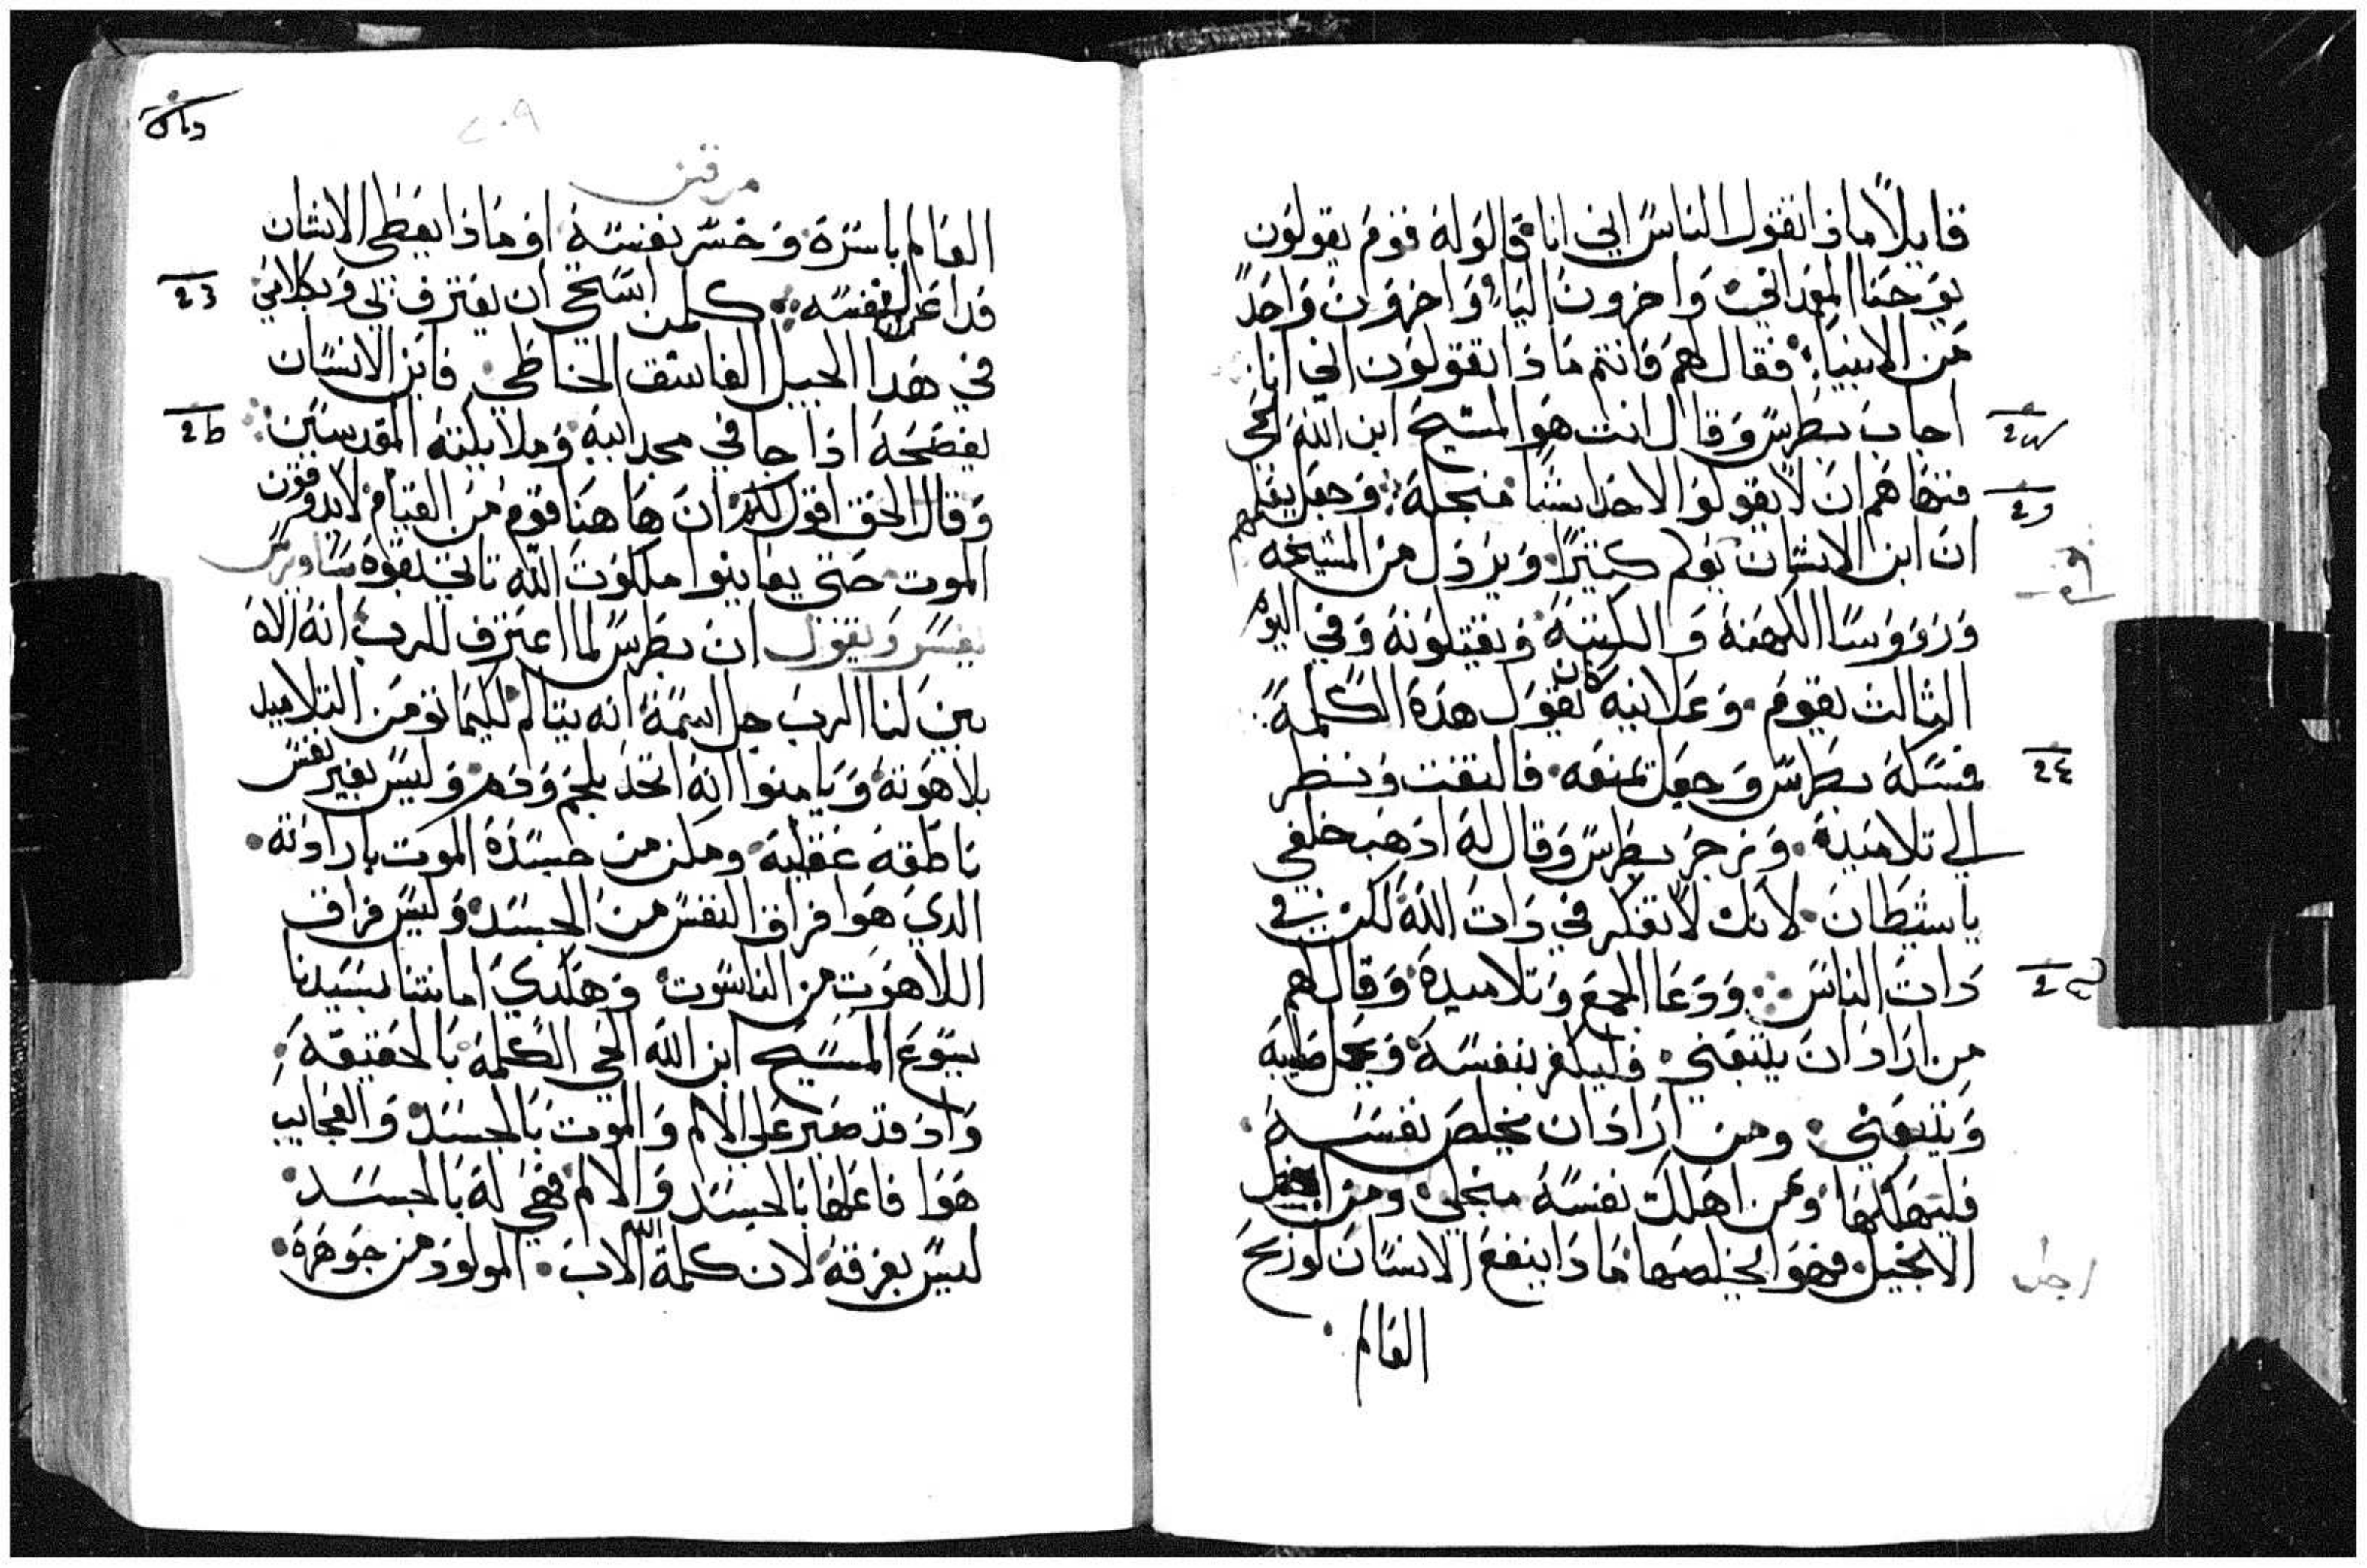 قايلاً ماذا تقول الناس اني انا قالوا له قوم يقولون
يوحنا المعمداني واخرون اليا واخرون واحداً
من الانبيا فقال لهم فانتم ماذا تقولون اني انا
اجاب بطرس وقال انت هو المسيح ابن الله الحي
فنهاهم ان لا يقولوا لاحد ايشيا منجله وجعل يعلمهم
ان ابن الانسان يولم كتيراً ويرذل من المشيخه
وروؤسا الكهنه والكتبه ويقتلونه وفي اليوم
التالت يقوم وعلانيه كان يقول هده الكلمة
فمسكه بطرس وجعل تمنعه فالتفت ونظر
الي تلاميده وزجر بطرس وقال له ادهب خلفي
ياشيطان لانك لا تفكر في دات الله لكن في
دات الناس ودعا الجمع وتلاميده وقال لهم
من اراد ان يتبعني فليكفر بنفسه ويحمل صليبه
ويتبعني ومن اراد ان يخلص نفسه
فليهلكها ومن اهلك نفسه منجلي ومن اجل
الانجيل فهو يخلصها ماذا ينفع الانسان لو ربح
اجل
العالم
مرقس
العالم باسره وخسر نفسه او ماذا يعطي الانسان
فدا عن نفسه كلمن استحي ان يعترف بي وبكلامي
في هدا الجيل الفاسق الخاطي فابن الانسان
يفضحه اذا جا في مجد ابيه وملايكته المقدسين
وقال الحق اقول لكم ان هاهنا قوم من القيام لا يدوقون
الموت حتي يعاينوا ملكوت الله تاتي بقوه ساويرس
يفسر ويقول ان بطرس لما اعترف للرب انه الاه
بين لنا الرب جل اسمه انه يتالم لكيما تومن التلاميد
بلاهوته ويامنوا انه اتحد بلحم ودم وليس بغير نفس
ناطقه عقليه ومكن من جسده الموت بارادته
الدي هوا فراق النفس من الجسد وليس فراق
اللاهوت من الناسوت وهكدي امانتنا بسيدنا
يسوع المسيح ابن الله الحي الكلمة بالحقيقه
واد قد صبر علي الالم والموت بالجسد والعجايب
هوا فاعلها بالجسد والالم فهي له بالجسد
ليس بفرقه لان كلمة الله الاب المولود من جوهره